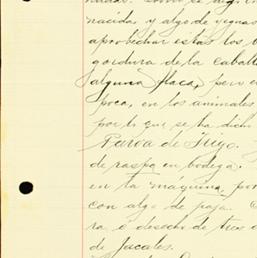 nacida y algo de yeguas
aprobechar estas los
gordura de la caball
alguna flaca, pero e
poca, en los animales
por lo que se ha dich
Parva de Trigo.
de raspa en bodega.
en la máquina, por
con algo de paja.
ra é desecho de tres
de Jacales.